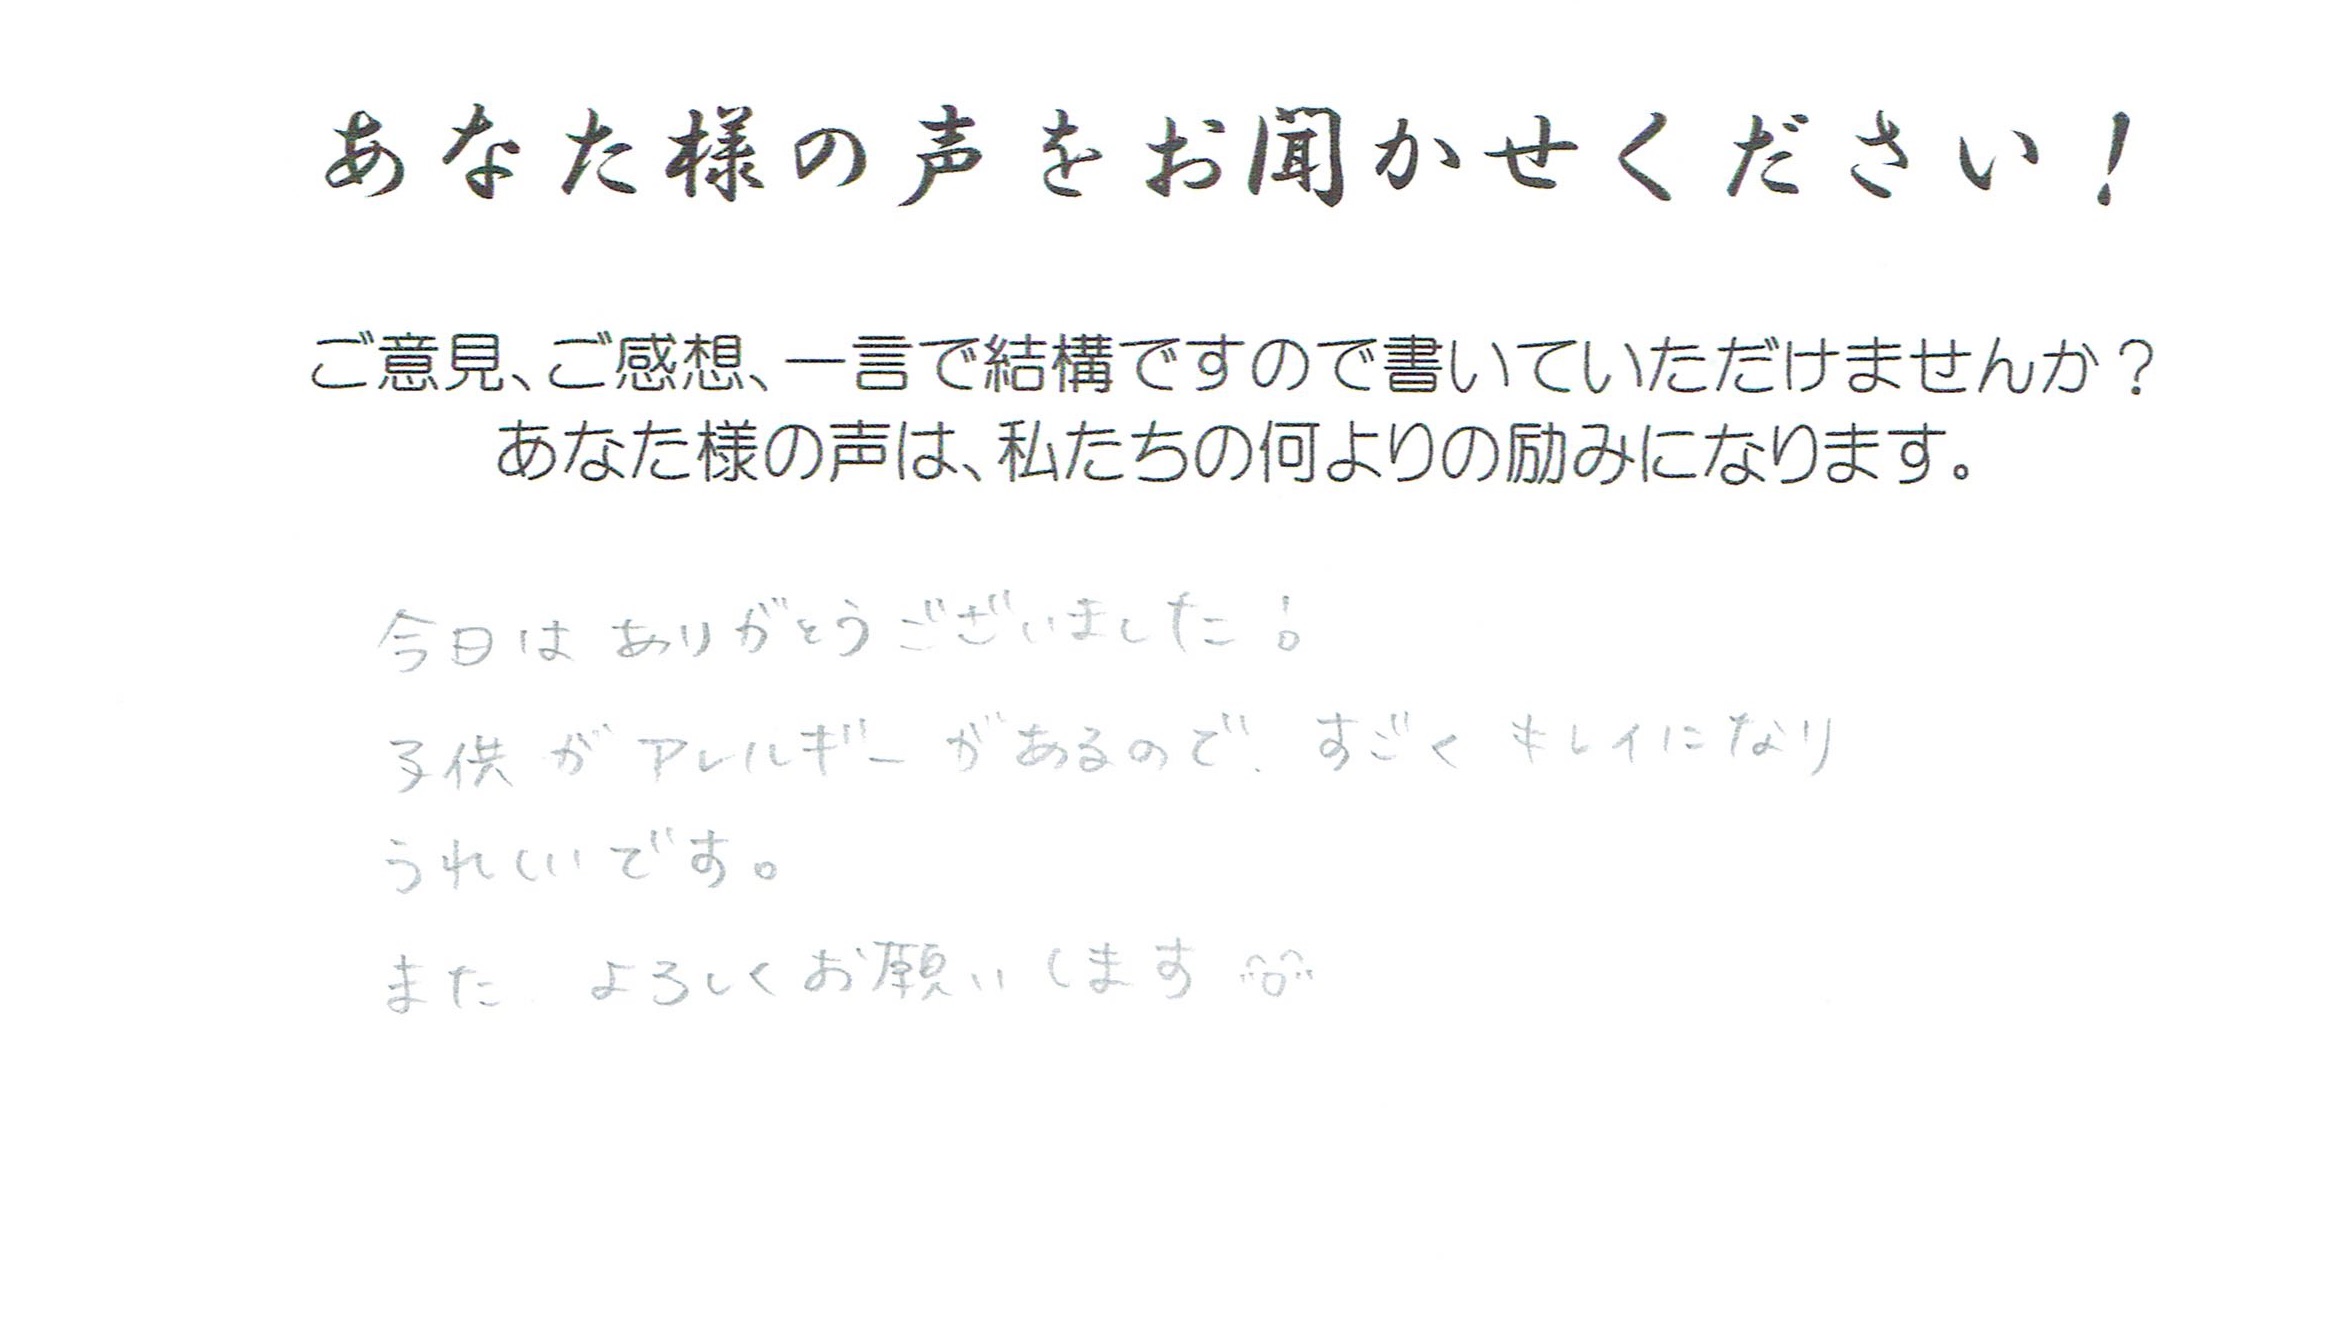 あなた様の声をお聞かせください！
ご意見、ご感想、一言で結構ですので書いていただけませんか？
あなた様の声は、私たちの何よりの励みになります。
今日は ありがとうございました！
子供が アレルギーがあるので、すごく キレイになり
うれしいです。
また よろしくお願いします